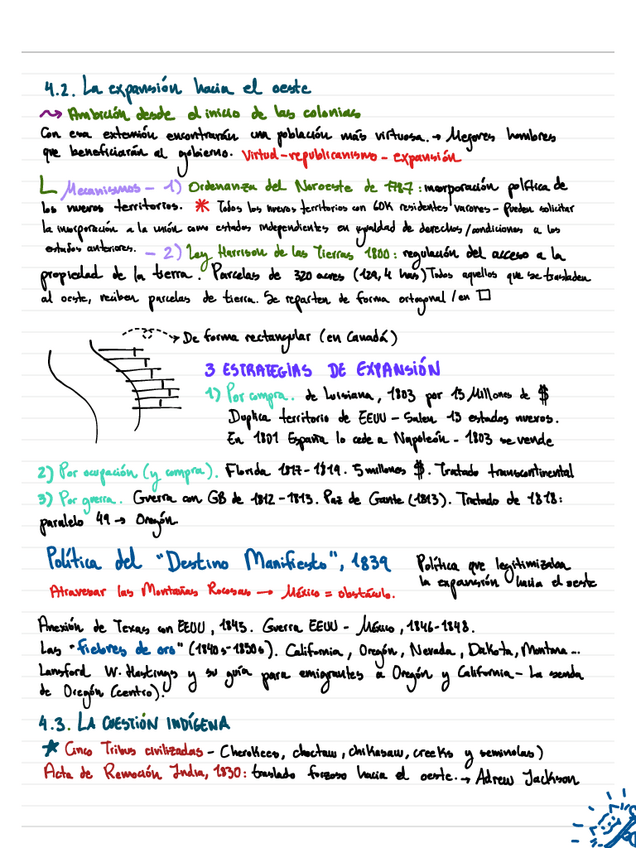 4.2. La expansión hacia el oeste
~> Ambición desde el inicio de las colonias
Con esa extensión encontrarán una población más virtuosa. → Mejores hombres
que beneficiarán al gobierno. Virtud-republicanismo-expansión
Mecanismos - 1) Ordenanza del Noroeste de 1787: incorporación política de
los nuevos territorios. * Todos los nuevos territorios con 60K residentes varones - pueden solicitar
la incorporación a la unión como estados independientes en igualdad de derechos/condiciones a los
estados anteriores. - 2) Ley Harrison de las Tierras 1800: regulación del acceso a la
propiedad de la tierra. Parcelas de 320 acres (129,4 has) Todos aquellos que se trasladen
al oeste, reciben parcelas de tierra. Se reparten de forma ortogonal / en □
→ De forma rectangular (en Canadá)
3 ESTRATEGIAS DE EXPANSIÓN
1) Por compra. de Luisiana, 1803 por 15 Millones de $
Duplica territorio de EEUU - Salen 13 estados nuevos.
En 1801 España lo cede a Napoleón - 1803 se vende
2) Por ocupación (y compra). Florida 1817-1819. 5 millones $. Tratado transcontinental
3) Por guerra. Guerra con GB de 1812-1813. Paz de Gante (1813). Tratado de 1818:
paralelo 49 → Oregón
Política del "Destino Manifiesto", 1839
Política que legitimizaba
la expansión hacia el oeste
Atravesar las Montañas Rocosas → México = obstáculo.
Anexión de Texas con EEUU, 1845. Guerra EEUU - México, 1846-1848.
Las "fiebres de oro" (1840s-1850s). California, Oregón, Nevada, Dakota, Montana...
Lansford W. Hastings y su guía para emigrantes a Oregón y California - La senda
de Oregón (centro).
4.3. LA CUESTIÓN INDÍGENA
★ Cinco Tribus civilizadas - Cherokees, choctaw, chikasaw, creeks y seminolas)
Acta de Remoción India, 1830: traslado forzoso hacia el oeste. → Adrew Jackson